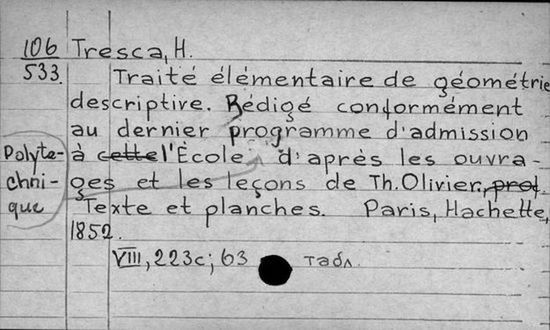 106 Tresca, H.
533. Traité élémentaire de géométrie
descriptive. Rédigé conformément
au dernier programme d'admission
à cette l'École d'après les ouvra-
ges et les leçons de Th. Olivier, prof.
Texte et planches. Paris, Hachette,
1852.
VIII, 223c; 63 табл.
Polyte-
chni-
que